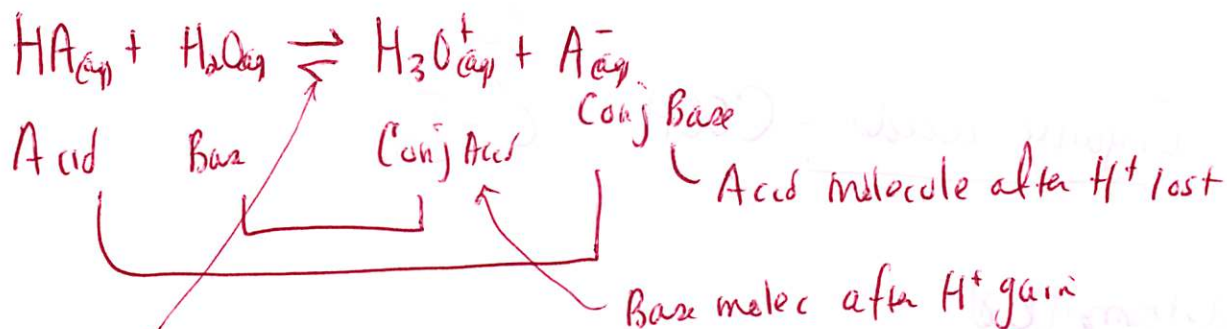 HA(aq) + H₂O(aq) ⇌ H₃O⁺(aq) + A⁻(aq)
Acid Base Conj Acid Conj Base
Acid molecule after H⁺ lost
Base molec after H⁺ gain